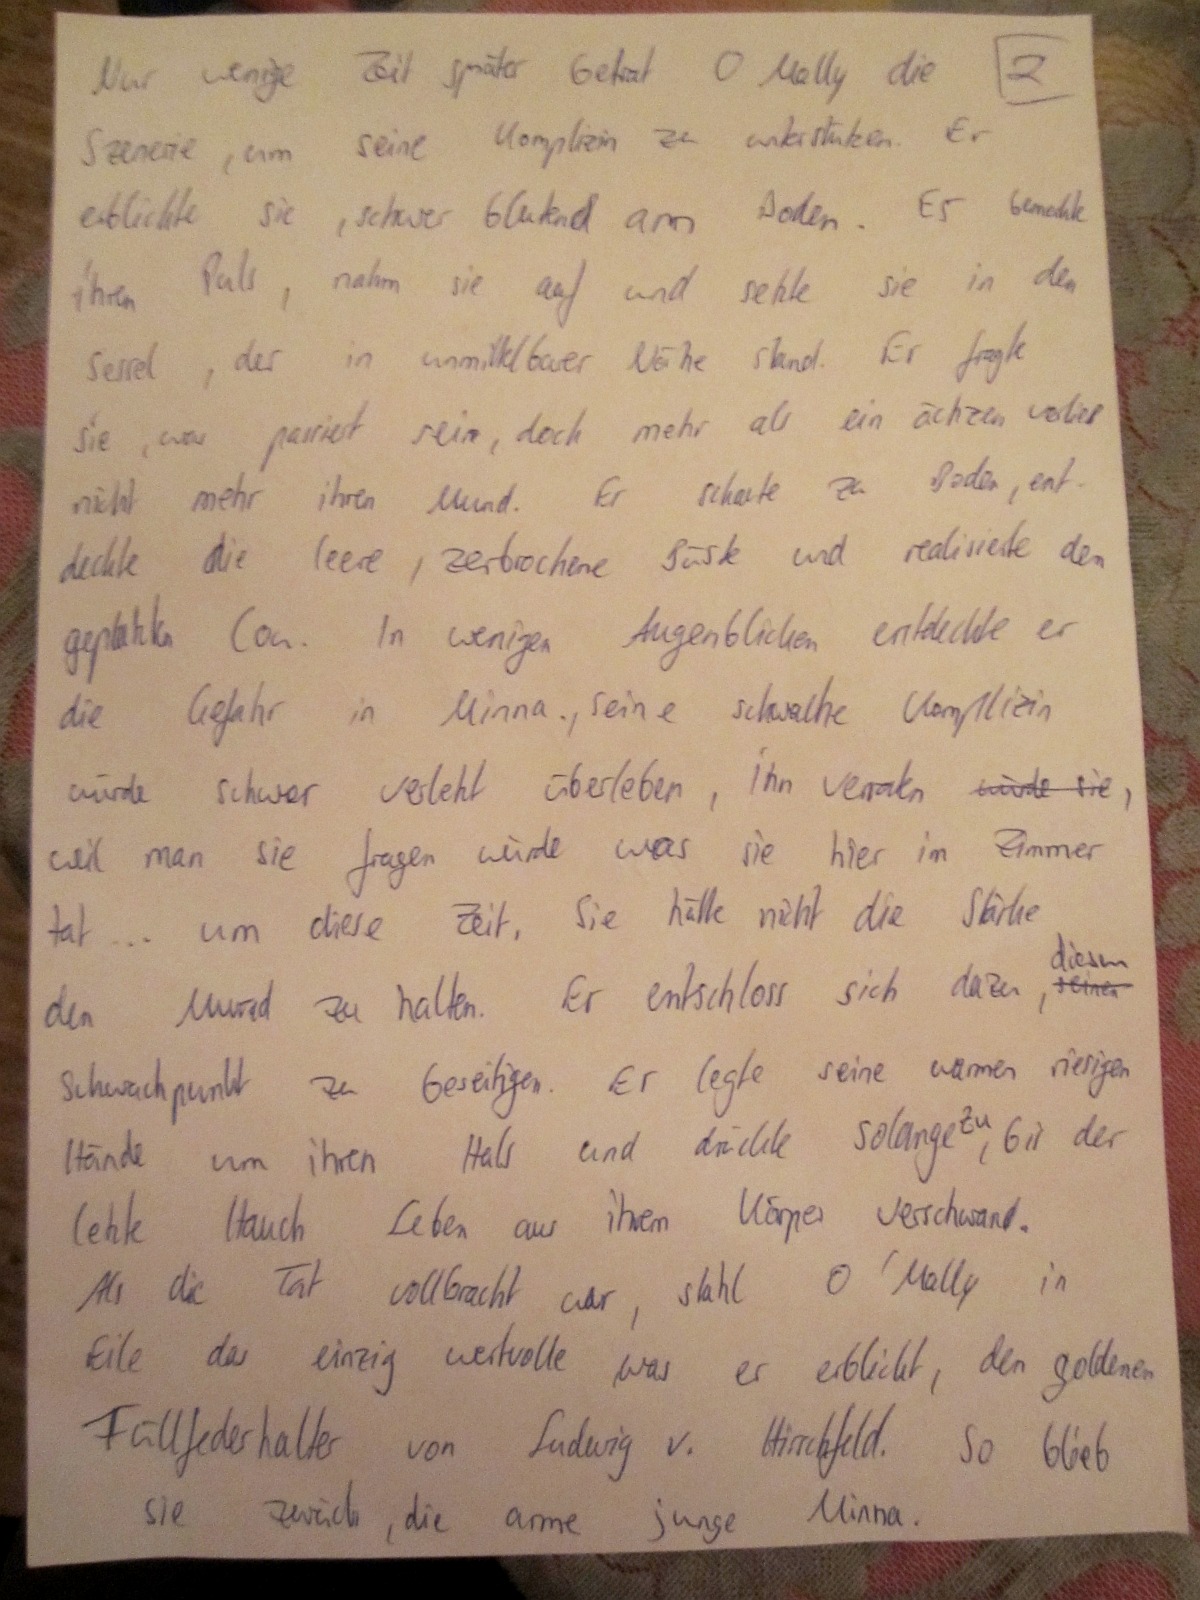 Nur wenige Zeit später betrat O Mally die 2
Szenerie, um seine Komplizin zu unterstützen. Er
erblickte sie, schwer blutend am Boden. Er bemerkte
ihren Puls, nahm sie auf und setzte sie in den
Sessel, der in unmittelbarer Nähe stand. Er fragte
sie, was passiert sein, doch mehr als ein ächzen verlies
nicht mehr ihren Mund. Er schaute zu Boden, ent-
deckte die leere, zerbrochene Büste und realisierte den
geplatzten Cou. In wenigen Augenblicken entdeckte er
die Gefahr in Minna., seine schwache Komplizin
würde schwer verletzt überleben, ihn verraten würde sie,
weil man sie fragen würde was sie hier im Zimmer
tat ... um diese Zeit. Sie hätte nicht die Stärke
den Mund zu halten. Er entschloss sich dazu, seinen diesen
Schwachpunkt zu beseitigen. Er legte seine warmen riesigen
Hände um ihren Hals und drückte solange zu, bis der
letzte Hauch Leben aus ihrem Körper verschwand.
Als die Tat vollbracht war, stahl O'Mally in
Eile das einzig wertvolle was er erblickt, den goldenen
Füllfederhalter von Ludwig v. Hirschfeld. So blieb
sie zurück, die arme junge Minna.